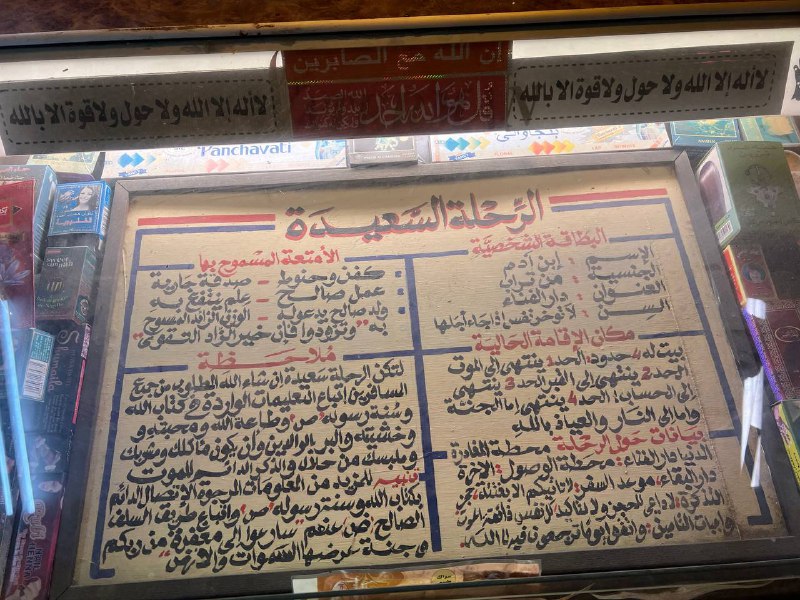 إن الله مع الصابرين
لا اله إلا الله ولا حول ولا قوة الا بالله
لا اله إلا الله ولا حول ولا قوة الا بالله
Panchavati
الرحلة السعيدة
البطاقة الشخصية
الإسم : إبن آدم
الجنسية : من تراب
العنوان : دار الفناء
السن : لا يؤخر نفس إذا جاء أجلها
مكان الإقامة الحالية
بيت له 4 حدود: الحد 1 ينتهى إلى الموت
الحد 2 ينتهى إلى القبر الحد 3 ينتهى
إلى الحساب: الحد 4 ينتهى إما الجنة
وإما إلى النار والعياذ بالله
بيانات حول الرحلة محطة المغادرة
الدنيا دار الفناء: محطة الوصول: الآخرة
دار البقاء: موعد السفر: لا تأتيكم الا بغتة
التذكرة: لا داعى للحجز ولا تأكيد كل نفس ذائقة الموت
واتقوا يوما ترجعون فيه إلى الله
الأمتعة المسموح بها
كفن وحنوط – صدقة جارية
عمل صالح – علم ينتفع به
ولد صالح يدعو له – الوزن الزائد المسموح
به "وتزودوا فإن خير الزاد التقوى"
ملاحظة
لتكن الرحلة سعيدة ان شاء الله المطلوب من جميع
المسافرين إتباع التعليمات الواردة فى كتاب الله
وسنة رسوله "ص" وطاعة الله ومحبته و
خشيته والبر بالوالدين وأن يكون مأكلك ومشربك
وملبسك من حلال والذكر الدائم للموت
تنبيه للمزيد من المعلومات الرجوة الاتصال الدائم
بكتاب الله وسنة رسوله "ص" واتباع طريق السلف
الصالح "ض" عنهم "سارعوا إلى مغفرة من ربكم
وجنة عرضها السموات والأرض"